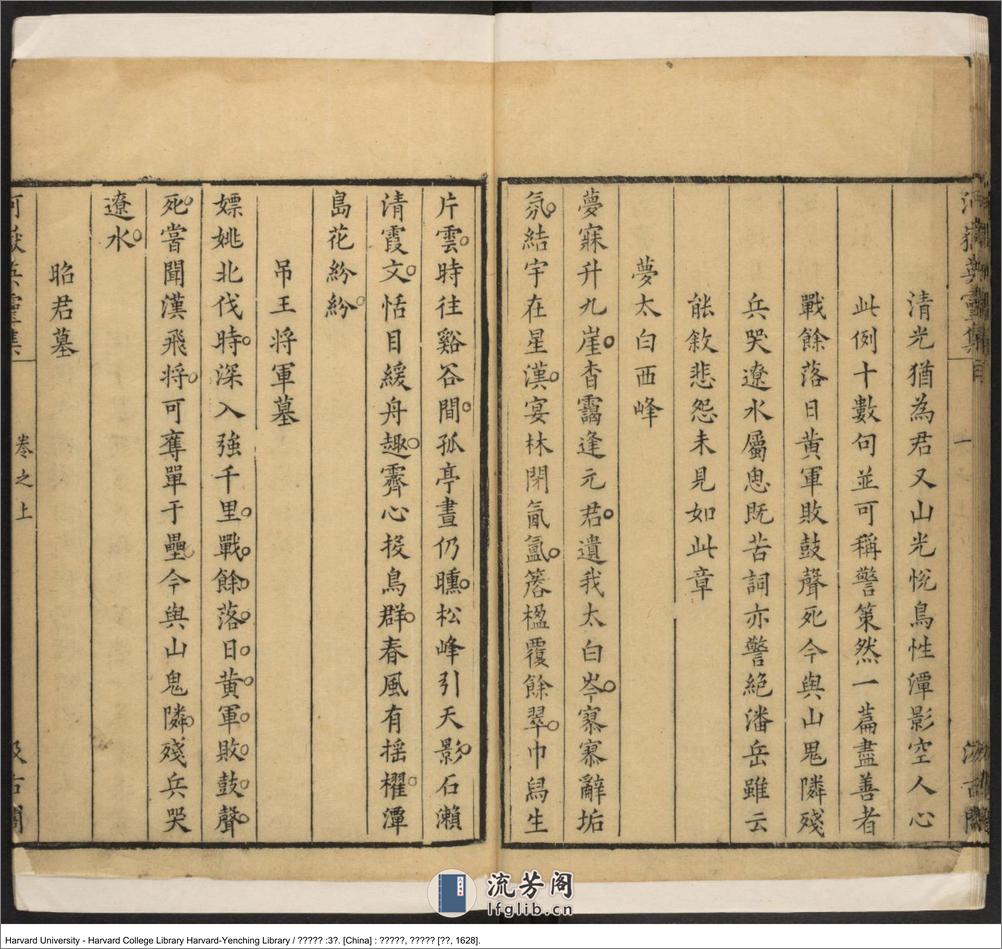 河嶽英靈集
一
汲古閣
清光猶為君又山光悅鳥性潭影空人心
此例十數句並可稱警策然一篇盡善者
戰餘落日黃軍敗鼓聲死今與山鬼隣殘
兵哭遼水屬思既苦詞亦警絕潘岳雖云
能敘悲怨未見如此章
夢太白西峰
夢寐升九崖杳靄逢元君遺我太白岑寥寥辭垢
氛結宇在星漢宴林閉氤氳簷楹覆餘翠巾舄生
片雲時往谿谷間孤亭晝仍曛松峰引天影石瀨
清霞文恬目緩舟趣霽心投鳥群春風有揺櫂潭
島花紛紛
吊王将軍墓
嫖姚北伐時深入強千里戰餘落日黃軍敗鼓聲
死嘗聞漢飛将可奪單于壘今與山鬼隣殘兵哭
遼水
昭君墓
河嶽英靈集
卷之上
汲古閣
流芳阁
lfglib.cn
Harvard University - Harvard College Library Harvard-Yenching Library / ????? :3?. [China] : ?????, ????? [??, 1628].